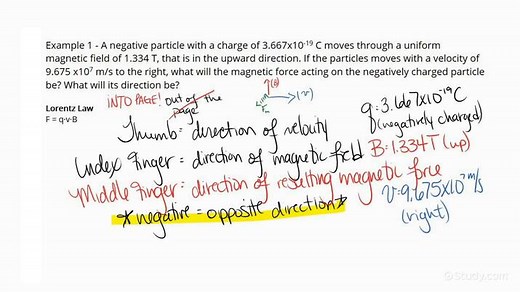 Example 1 - A negative particle with a charge of 3.667x10-19 C moves through a uniform
magnetic field of 1.334 T, that is in the upward direction. If the particles moves with a velocity of
9.675 x10⁷ m/s to the right, what will the magnetic force acting on the negatively charged particle
be? What will its direction be?
Lorentz Law
F = q·v·B
INTO PAGE! out of the page
(B)
(v)
Thumb = direction of velocity
Index finger = direction of magnetic field
Middle finger = direction of resulting magnetic force
*negative = opposite direction*
q: 3.667x10-19C
(negatively charged)
B: 1.334T (up)
v: 9.675x10⁷ m/s
(right)
Study.com